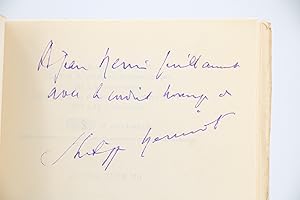 A Jean Henri Guillaumet
avec le cordial hommage de
Philippe Hériat